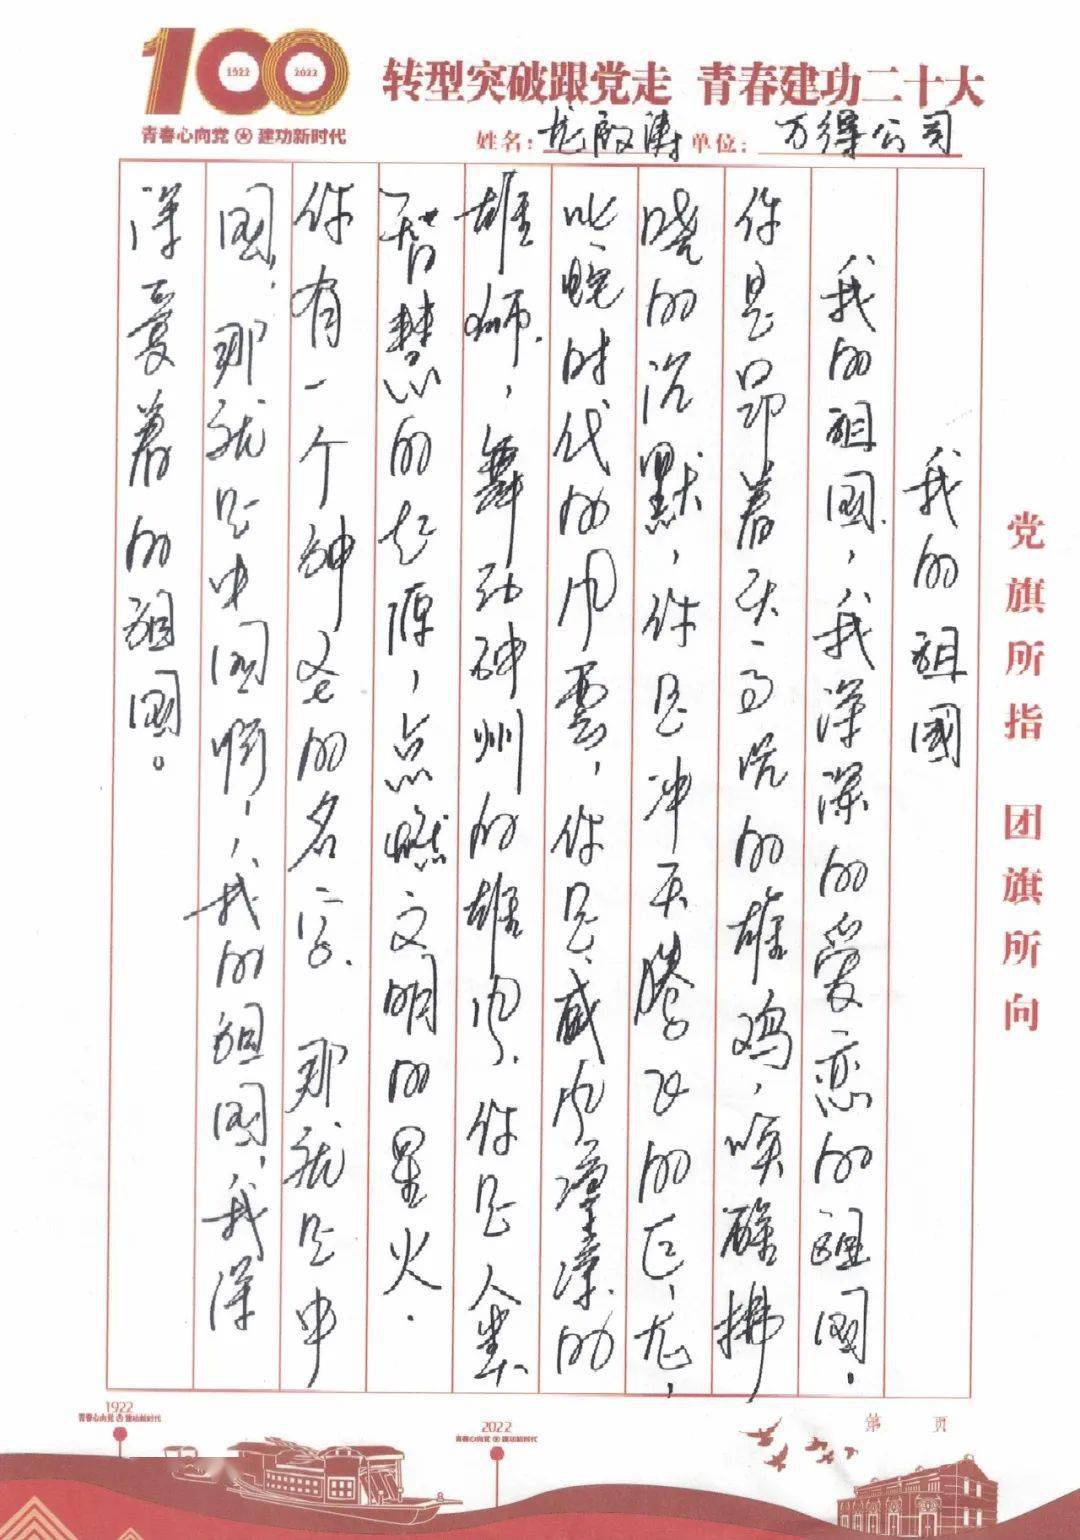 100
1922
2022
青春心向党 建功新时代
转型突破跟党走 青春建功二十大
姓名：龙啟涛 单位：万得公司
我的祖國
我的祖國，我深深的爱恋的祖國，
你是昂着天高沉的雄鸡，唤醒拂
晓的沉默，你是冲天腾飞的巨龙，
叱咤时代的风雲，你是威风凛凛的
雄狮，舞动神州的雄风，你是人类
智慧的起源，点燃文明的星火．
你有一个神圣的名字，那就是中
國，那就是中國啊，我的祖國，我深
深爱着的祖國。
党旗所指 团旗所向
1922
青春心向党 建功新时代
2022
青春心向党 建功新时代
第 页